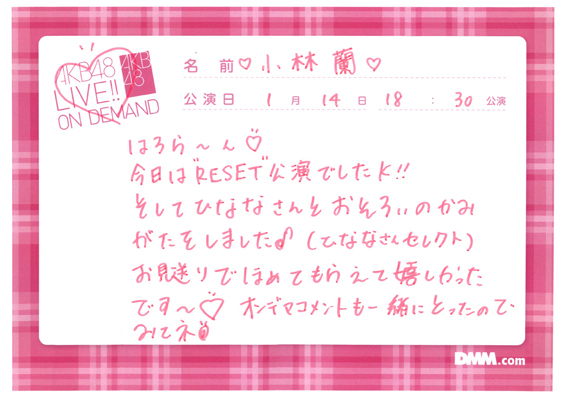 AKB48
LIVE!!
ON DEMAND
AKB
48
名 前 ♡小林 蘭♡
公演日 1月14日18:30公演
はろら〜ん♡
今日は"RESET"公演でしたK!!
そしてひななさんとおそろいのかみ
がたをしました♪(ひななさんセレクト)
お見送りでほめてもらえて嬉しかった
です〜♡ オンデマコメントも一緒にとったので
みてネ
DMM.com